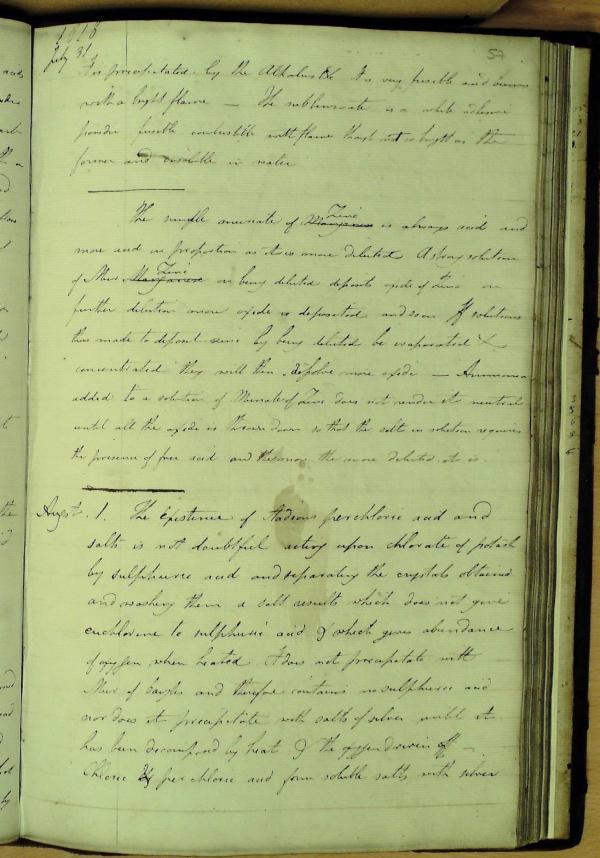 1818
July 31
57
It is precipitated by the Alkalies &c It is very fusible and burns
with a bright flame — The subbenzoate is a white adhesive
powder fusible combustible with flame though not so bright as the
former and insoluble in water
The simple muriate of Manganese Zinc is always acid and
more acid in proportion as it is more diluted. A strong solution
of Mur Manganese Zinc on being diluted deposits oxide of Zinc on
further dilution more oxide is deposited and soon If solutions
thus made to deposit some by being diluted be evaporated &
concentrated they will then dissolve more oxide — Ammonia
added to a solution of Muriate of Zinc does not render it neutral
until all the oxide is thrown down so that the salt in solution requires
the presence of free acid and the more the more diluted it is
Augst. 1. The Existence of Stadions perchloric acid and
salts is not doubtful acting upon chlorate of potash
by sulphuric acid and separating the crystals obtained
and washing them a salt results which does not give
euchlorine to sulphuric acid & which gives abundance
of oxygen when heated It does not precipitate with
Mur of barytes and therefore contains no sulphuric acid
nor does it precipitate with salts of silver until it
has been decomposed by heat & the oxygen driven off —
Chloric & perchloric acid form soluble salts with silver